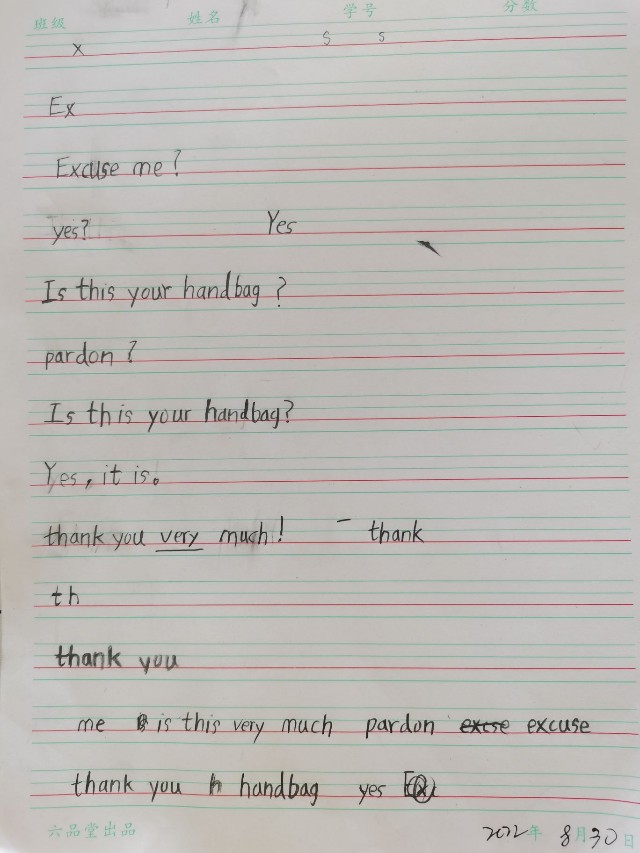 班级 姓名 学号 分数
x s s
Ex
Excuse me?
yes? Yes
Is this your handbag?
pardon?
Is this your handbag?
Yes, it is。
thank you very much! - thank
th
thank you
me is this very much pardon excse excuse
thank you h handbag yes
六品堂出品 2022年 8月30日